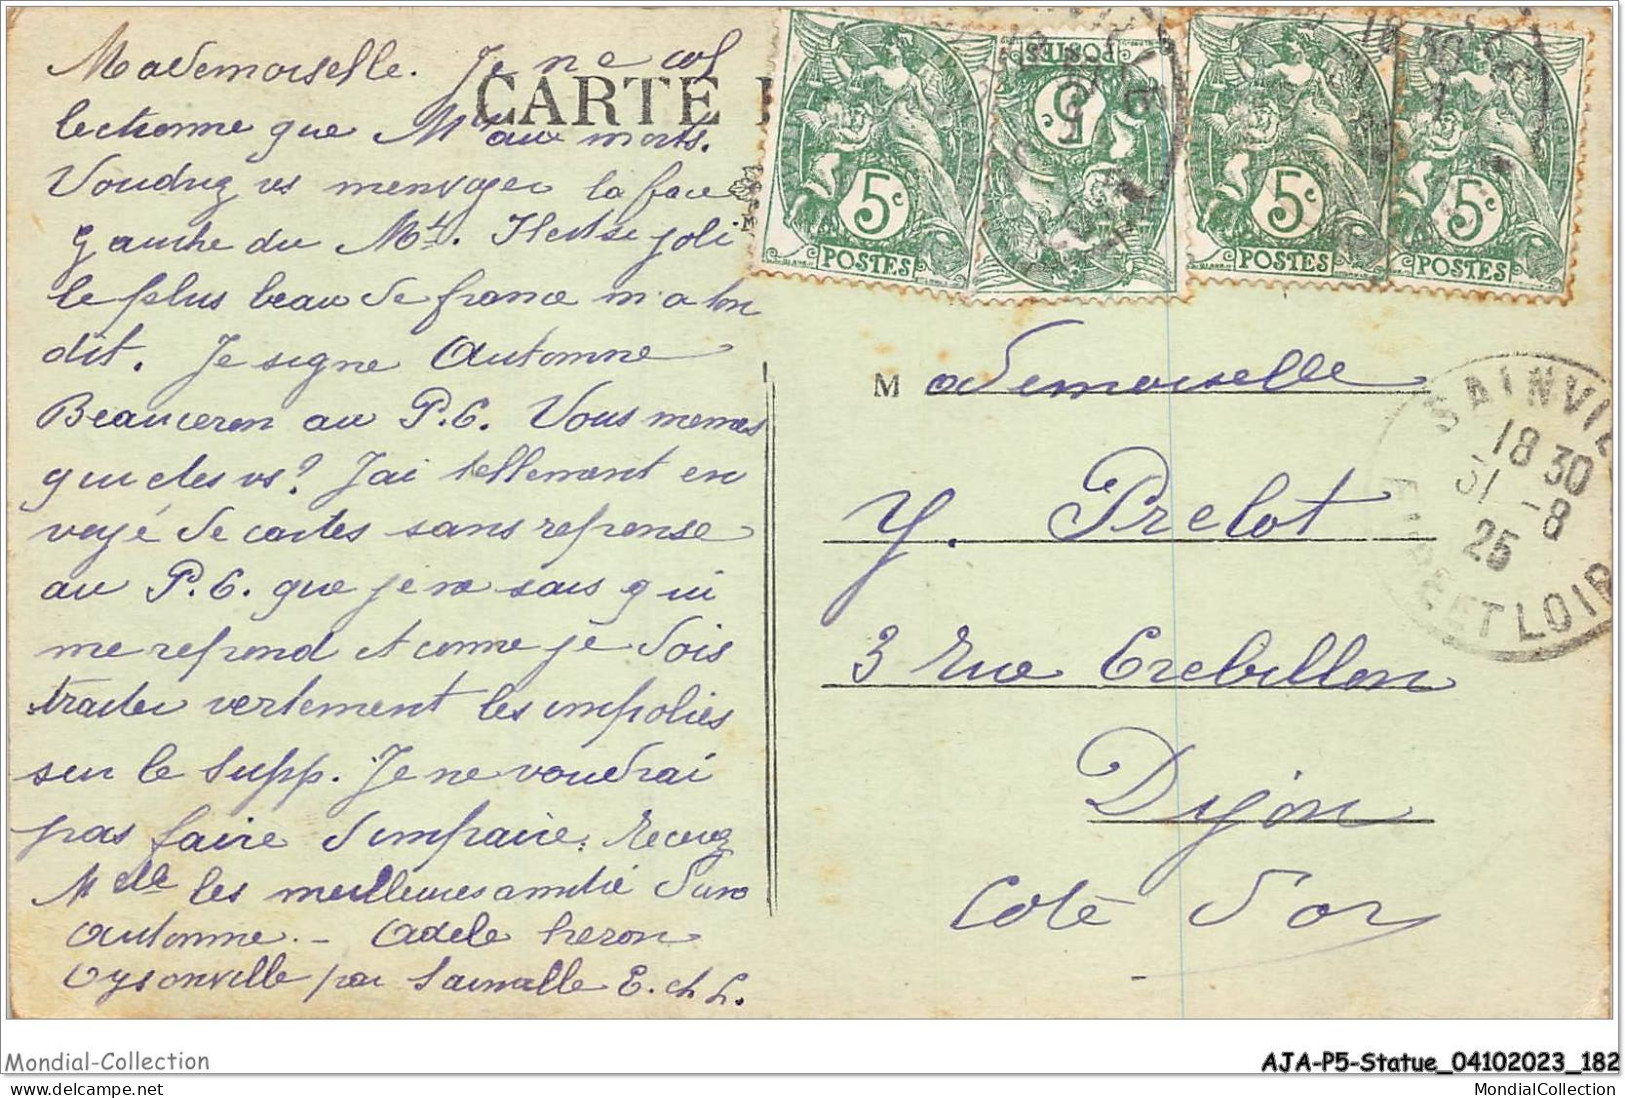 Mademoiselle. Je ne col
lectionne que Mts aux morts.
Voudriez vs m'envoyer la face
gauche du Mt. Il est si joli
le plus beau de france m'a ton
dit. Je signe Automne
Beauceron au P.C. Vous memes
qui etes vs? Jai tellement en
voyé de cartes sans reponse
au P.C. que je ne sais qui
me repond et comme je dois
traiter vertement les impolies
sur le Supp. Je ne voudrai
pas faire d'impaire. Recevez
Melle les meilleures amitié d'une
automne. - Adele heron
Oysonville par Sainville E. et L.
CARTE
5c
POSTES
5c
POSTES
5c
POSTES
5c
POSTES
18 30
M ademoiselle
Y. Prelot
3 rue Crebillon
Dijon
Cote d'or
SAINVIL
18 30
31 -8
25
EURE ET LOIR
Mondial-Collection
AJA-P5-Statue_04102023_182
https://www.delcampe.net
MondialCollection